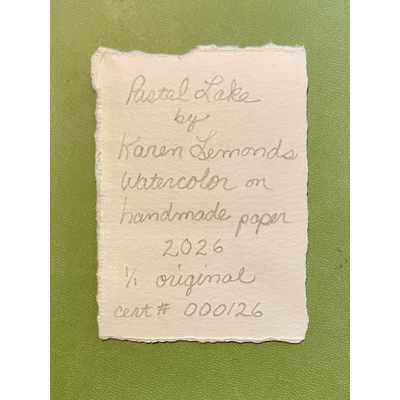 Pastel Lake
by
Karen Lemonds
Watercolor on
handmade paper
2026
1/1 original
cert# 000126